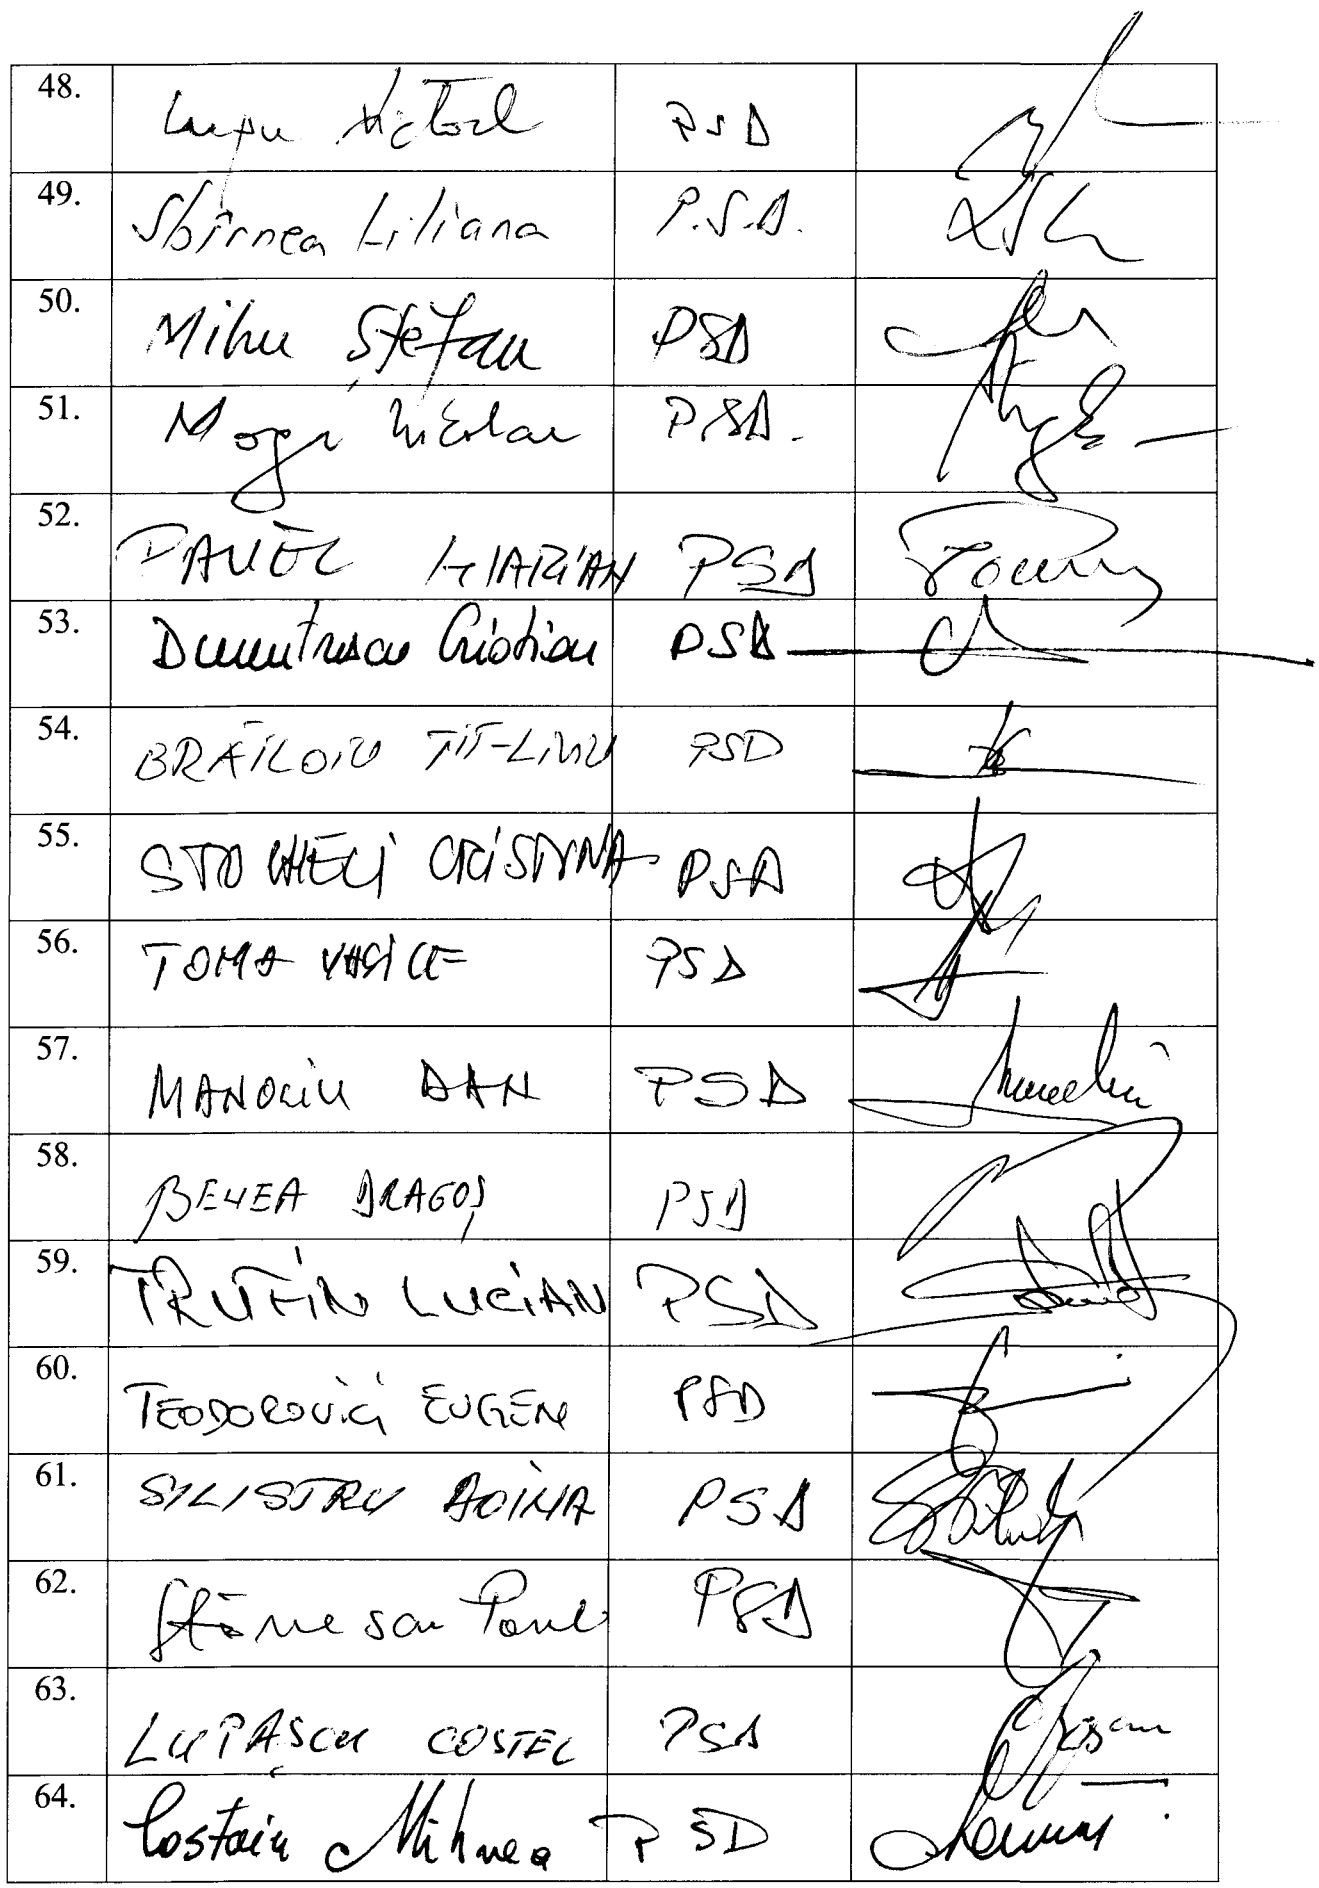 48. Lupu Victorel PSD
49. Sbîrnea Liliana P.S.D.
50. Mihu Ștefan PSD
51. Moga Nicolae PSD.
52. PAVEL MARIAN PSD
53. Dumitrescu Cristian PSD
54. BRĂILOIU TIT-LIVIU PSD
55. CRISTINA PSD
56. TOMA VASILE PSD
57. MANOLIU DAN PSD
58. BENEA DRAGOȘ PSD
59. TRUFIN LUCIAN PSD
60. TEODOROVICI EUGEN PSD
61. SILISTRU DOINA PSD
62. Stănescu Paul PSD
63. LUPAȘCU COSTEL PSD
64. Costoiu Mihnea PSD